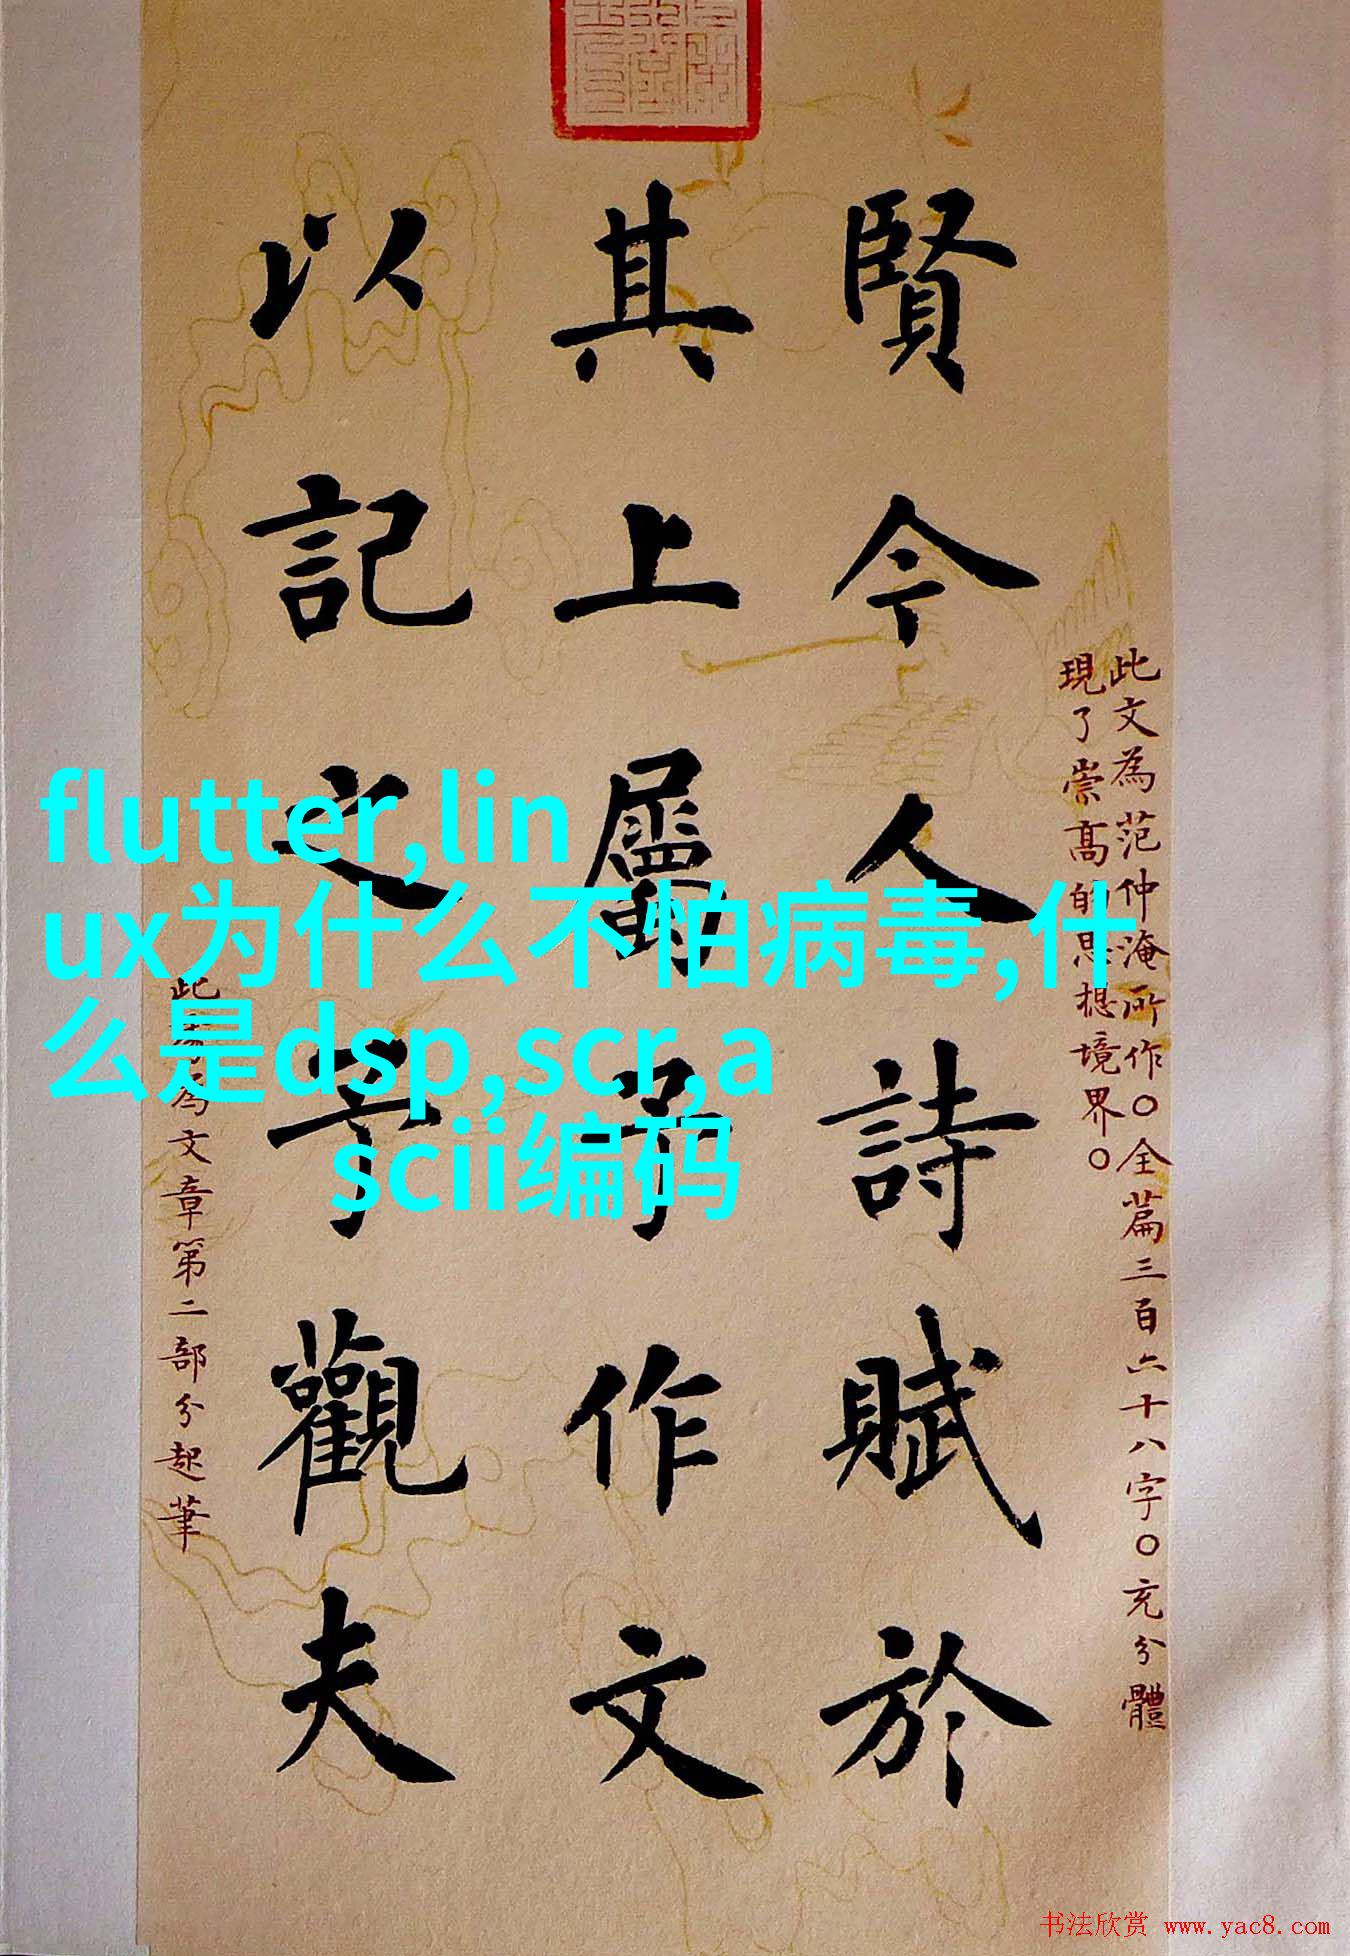 賢今人詩賦於
其上屬予作文
以記之予觀夫
此文為范仲淹所作〇全篇三百六十八字〇充分體
現了崇高的思想境界〇
此爲文章第二部分起筆
flutter,lin
ux为什么不怕病毒,什
么是dsp,scr,a
scii编码
书法欣赏 www.yac8.com